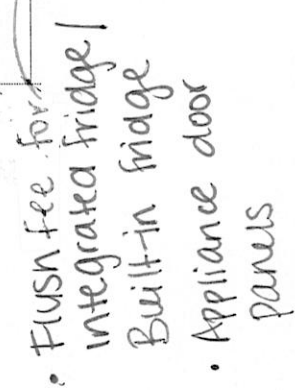 • Flush fee for
Integrated fridge /
Built-in fridge
• Appliance door
panels